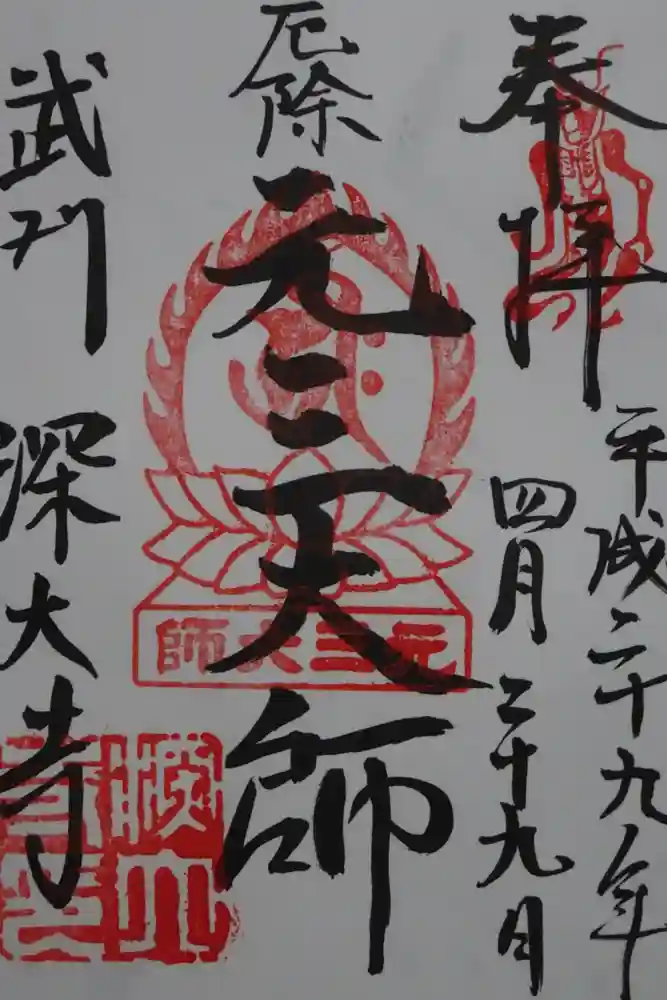 奉拝
平成二十九年
四月二十九日
厄除
元三大師
元三大師
武州
深大寺